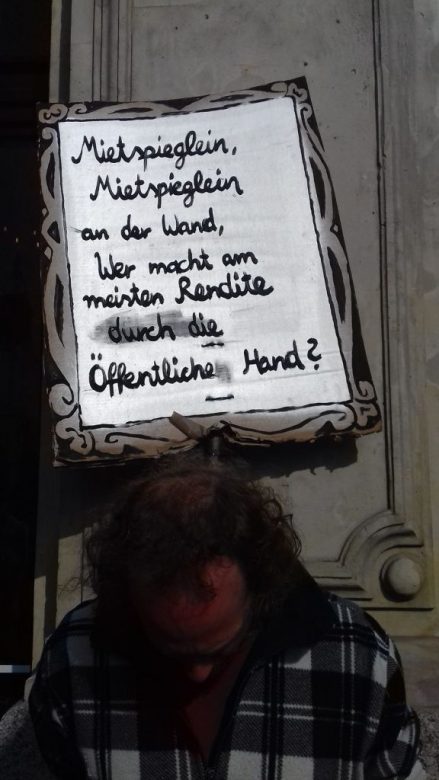 Mietspieglein,
Mietspieglein
an der Wand,
Wer macht am
meisten Rendite
durch die
Öffentliche Hand?